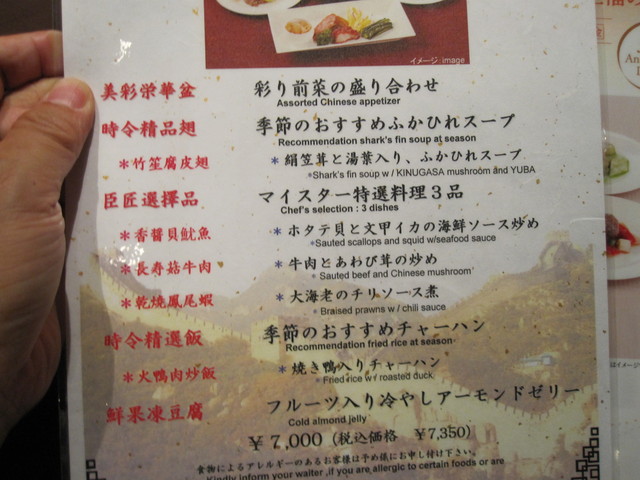 イメージ:image
美彩栄華盆 彩り前菜の盛り合わせ
Assorted Chinese appetizer
時令精品翅 季節のおすすめふかひれスープ
Recommendation shark's fin soup at season
*竹笙腐皮翅 *絹笠茸と湯葉入り、ふかひれスープ
*Shark's fin soup w / KINUGASA mushroom and YUBA
臣匠選擇品 マイスター特選料理3品
Chef's selection : 3 dishes
*香醤貝魷魚 *ホタテ貝と文甲イカの海鮮ソース炒め
*Sauted scallops and squid w/seafood sauce
*長寿菇牛肉 *牛肉とあわび茸の炒め
*Sauted beef and Chinese mushroom
*乾焼鳳尾蝦 *大海老のチリソース煮
*Braised prawns w / chili sauce
時令精選飯 季節のおすすめチャーハン
Recommendation fried rice at season
*火鴨肉炒飯 *焼き鴨入りチャーハン
*Fried rice w / roasted duck
鮮果凍豆腐 フルーツ入り冷やしアーモンドゼリー
Cold almond jelly
¥7,000(税込価格 ¥7,350)
食物によるアレルギーのあるお客様は予め係にお申し付け下さい。
Kindly inform your waiter ,if you are allergic to certain foods or are
An